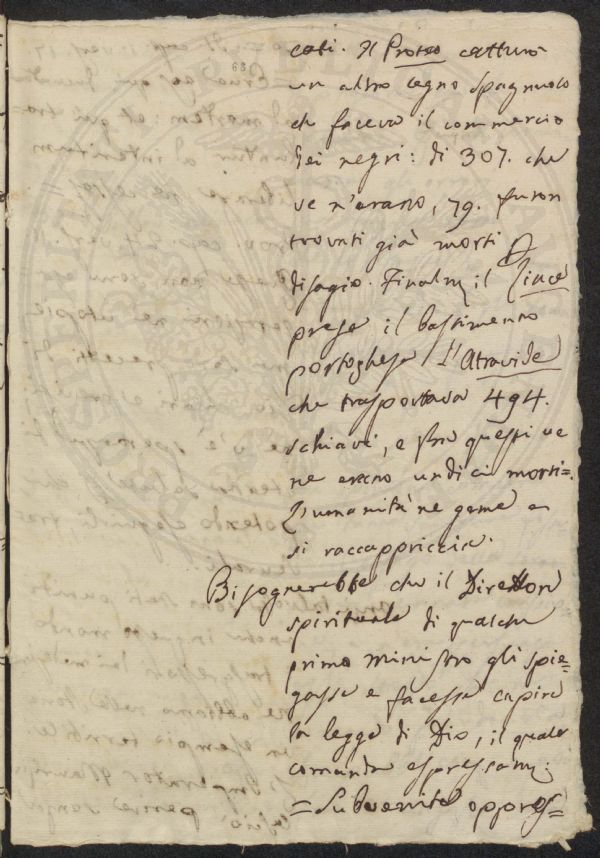 63
cati. Il Proteo catturò
un altro legno spagnuolo
che faceva il commercio
dei negri: di 307. che
ve n'erano, 79. furon
trovati già morti di
disagio. Finalm il Lince
prese il bastimento
portoghese l'Atravide
che trasportava 494.
schiavi, e fra questi ve
ne erano undici morti=
L'umanità ne geme e
si raccappriccia.
Bisognerebbe che il Direttore
spirituale di qualche
primo ministro gli spie=
gasse e facesse capire
la legge di Dio, il quale
comanda espressam:
=Subvenite oppres=